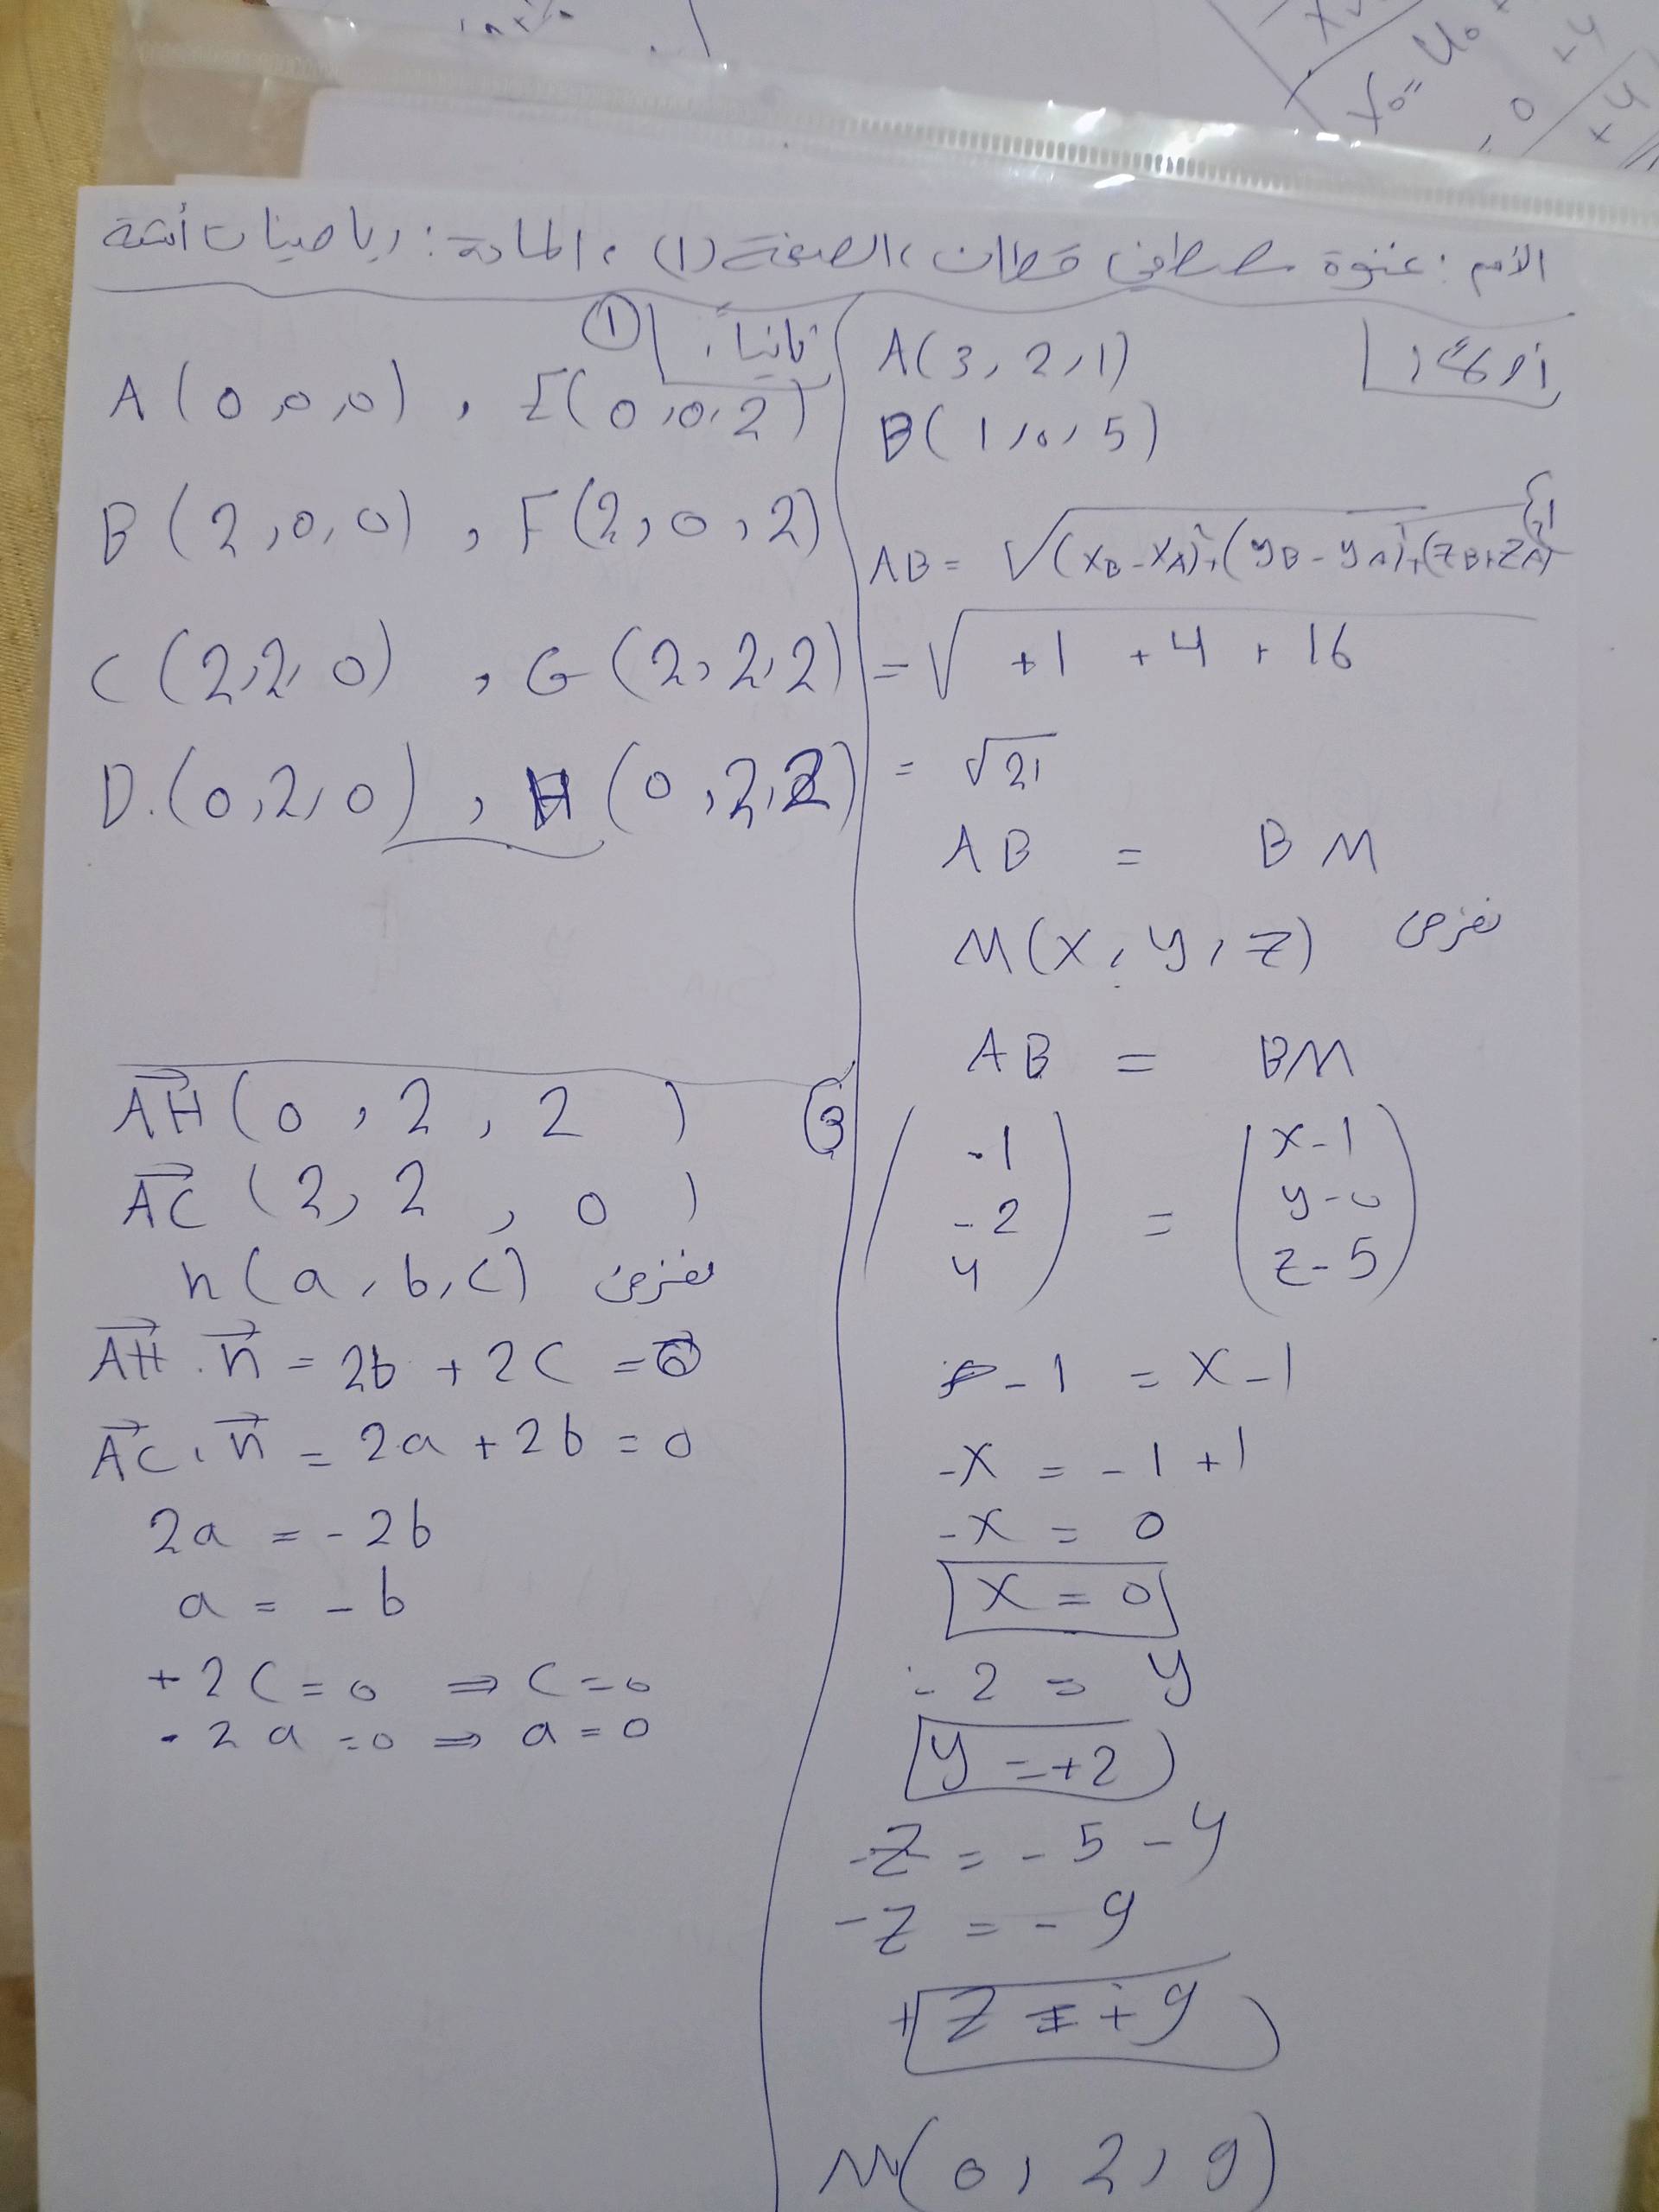 الأسم : غنوة مصطفى قطان ، الصفحة (1) ، المادة : رياضيات أتمتة
أولاً :
A(3, 2, 1)
B(1, 0, 5)
AB = √(xB - xA)² + (yB - yA)² + (zB + zA)²
= √ +1 + 4 + 16
= √21
AB = BM
نفرض M(x, y, z)
AB = BM
-1 x-1
-2 = y-0
4 z-5
-1 = x-1
-x = -1+1
-x = 0
x = 0
-2 = y
y = +2
-z = -5-4
-z = -9
+z = +9
M(0, 2, 9)
ثانياً : ①
A(0,0,0) , E(0,0,2)
B(2,0,0) , F(2,0,2)
C(2,2,0) , G(2,2,2)
D.(0,2,0) , H(0,2,2)
③
AH(0, 2, 2)
AC(2, 2, 0)
نفرض n(a, b, c)
AH . n = 2b + 2c = 0
AC . n = 2a + 2b = 0
2a = -2b
a = -b
+2c = 0 ⇒ c = 0
-2a = 0 ⇒ a = 0